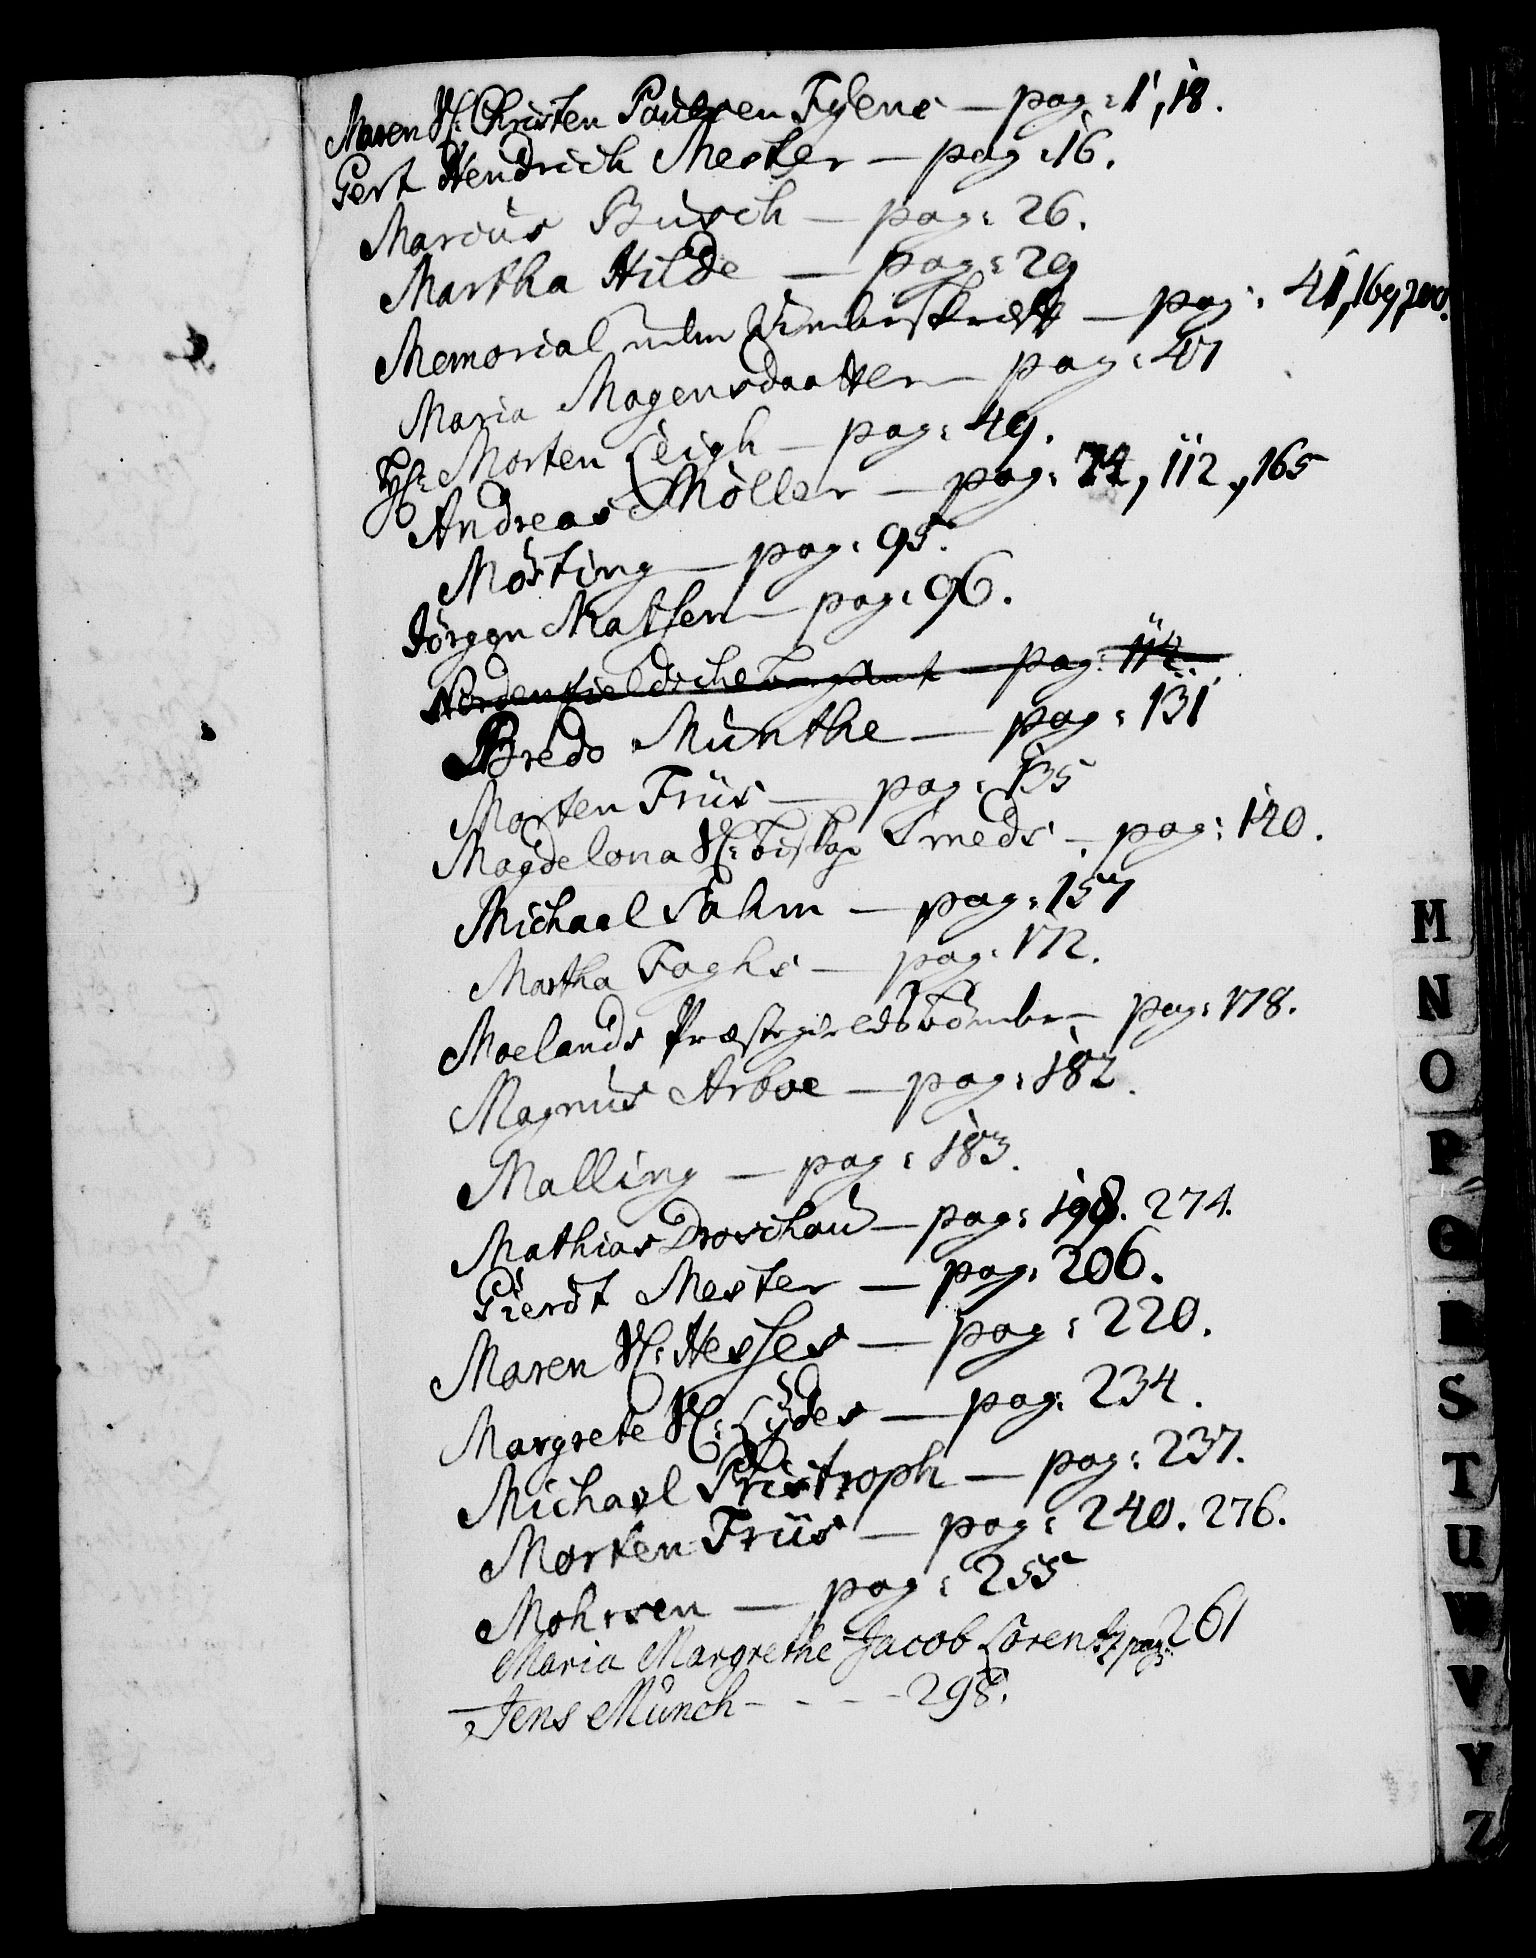 Maren Sl: Christen Paulsen Fylens – pag: 1, 18.
Gert Hendrich Mester – pag: 16.
Marcus Busch – pag: 26.
Martha Hilde – pag: 29
Memorial – pag: 41, 169, 200.
Maria Mogensdaatter – pag: 47
Morten Leigh – pag: 49.
Andreas Möller – pag: 74, 112, 165
Mösting – pag: 95.
Jörgen Matsen – pag: 96.
Nordenfieldsche – pag: 112.
Bredo Munthe – pag: 131
Morten Friis – pag: 135
Magdelona Sl: biskop Smeds – pag: 140.
Michael Sahm – pag: 157
Martha Foghs – pag: 172.
Moelands Præstegields bönder – pag: 178.
Magnus Arboe – pag: 182.
Malling – pag: 183.
Mathias Droschau – pag: 198. 274.
Gierdt Mester – pag: 206.
Maren Sl: Hesses – pag: 220.
Margrete Sl: Lyders – pag: 234.
Michael Pristroph – pag: 237.
Morten Friis – pag: 240. 276.
Mohrsen – pag: 255
Maria Margrethe Jacob Lorentz pag: 261
Jens Münch - - - - 298.
M
N
O
P
Q
R
S
T
U
W
V
Y
Z